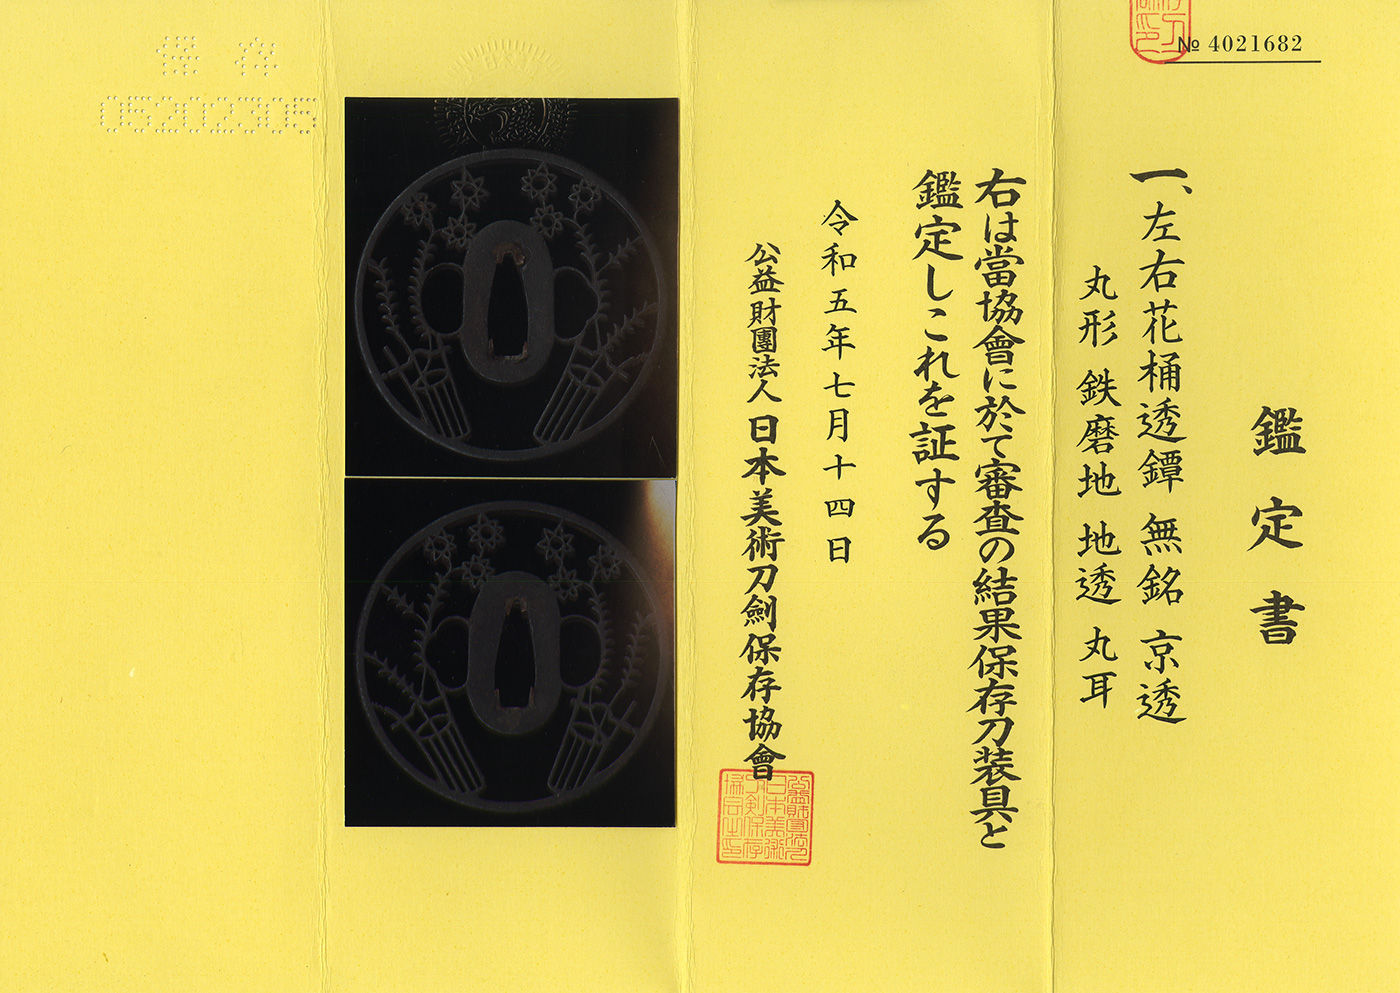 № 4021682
鑑定書
一、左右花桶透鐔 無銘 京透
丸形 鉄磨地 地透 丸耳
右は當協會に於て審査の結果保存刀装具と
鑑定しこれを証する
令和五年七月十四日
公益財團法人 日本美術刀劍保存協會
保存
05202305